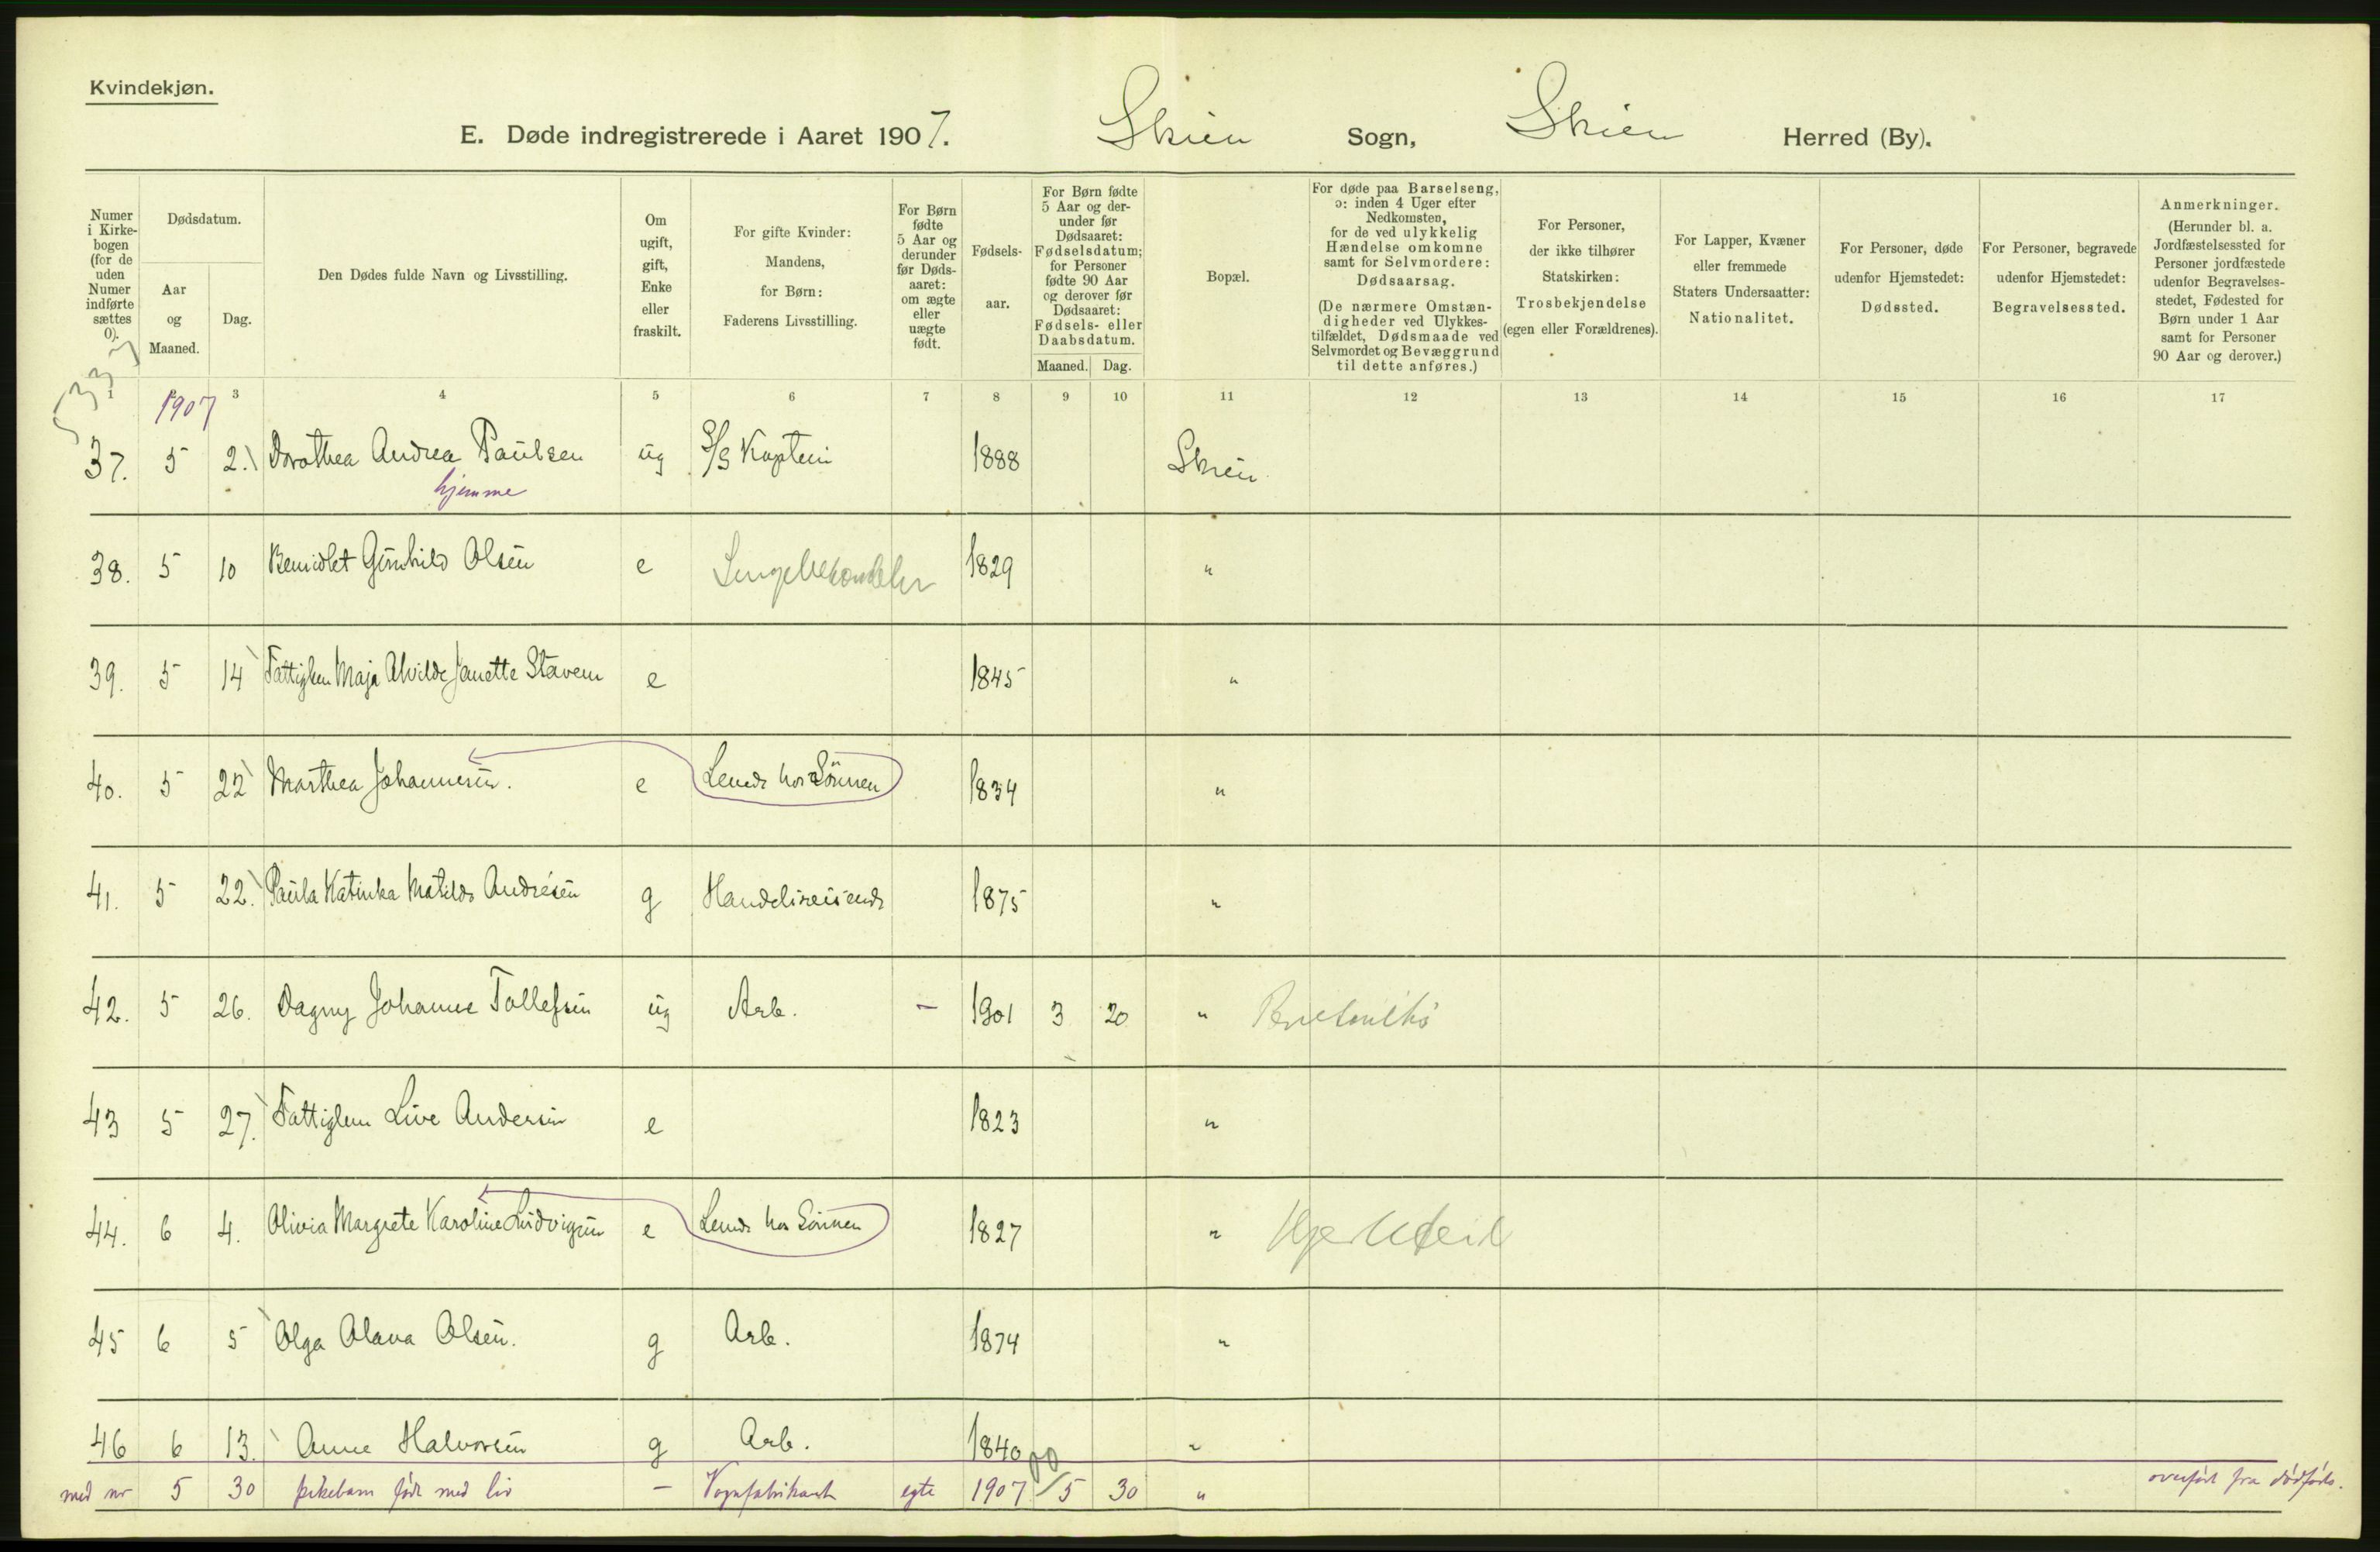 Kvindekjøn.
E. Døde indregistrerede i Aaret 1907. Skien Sogn, Skien Herred (By).
Numer i Kirke-bogen (for de uden Numer indførte sættes 0).
Dødsdatum.
Aar og Maaned.
Dag.
Den Dødes fulde Navn og Livsstilling.
Om ugift, gift, Enke eller fraskilt.
For gifte Kvinder: Mandens, for Børn: Faderens Livsstilling.
For Børn fødte 5 Aar og derunder før Døds-aaret: om ægte eller uægte født.
Fødsels-aar.
For Børn fødte 5 Aar og der-under før Dødsaaret: Fødselsdatum; for Personer fødte 90 Aar og derover før Dødsaaret: Fødsels- eller Daabsdatum.
Maaned. Dag.
Bopæl.
For døde paa Barselseng, ɔ: inden 4 Uger efter Nedkomsten, for de ved ulykkelig Hændelse omkomne samt for Selvmordere: Dødsaarsag. (De nærmere Omstæn-digheder ved Ulykkes-tilfældet, Dødsmaade ved Selvmordet og Bevæggrund til dette anføres.)
For Personer, der ikke tilhører Statskirken: Trosbekjendelse (egen eller Forældrenes).
For Lapper, Kvæner eller fremmede Staters Undersaatter: Nationalitet.
For Personer, døde udenfor Hjemstedet: Dødssted.
For Personer, begravede udenfor Hjemstedet: Begravelsessted.
Anmerkninger. (Herunder bl. a. Jordfæstelsessted for Personer jordfæstede udenfor Begravelses-stedet, Fødested for Børn under 1 Aar samt for Personer 90 Aar og derover.)
1 3 4 5 6 7 8 9 10 11 12 13 14 15 16 17
1907
37. 5 2. Dorothea Andrea Paulsen ug S/S Kaptein 1888 Skien
hjemme
38. 5 10 Gunhild Olsen e 1829 "
39. 5 14 Fattiglem Maja Alvilde Janette Stavem e 1845 "
40. 5 22 Marthea Johannesen. e Levede hos Sönnen 1834 "
41. 5 22. Paula Katinka Matilde Andresen g Handelsreisende 1875 "
42. 5 26. Dagny Johanne Tollefsen ug Arb. – 1901 3 20 "
43 5 27. Fattiglem Live Andersen e 1823 "
44. 6 4. Olivia Margrete Karoline Ludvigsen e Levede hos Sönnen 1827 " Hjertefeil
45 6 5 Olga Olava Olsen. g Arb. 1874 "
46 6 13. Anne Halvorsen g Arb. 1840 "
med nr 5 30 pikebarn född med liv – Vognfabrikant egte 1907 5 30 " overfört fra dödföds.